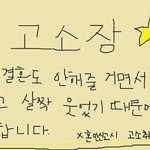 고소장
결혼도 안해줄 거면서
고 살짝 웃었기 때문에
합니다.
고소취